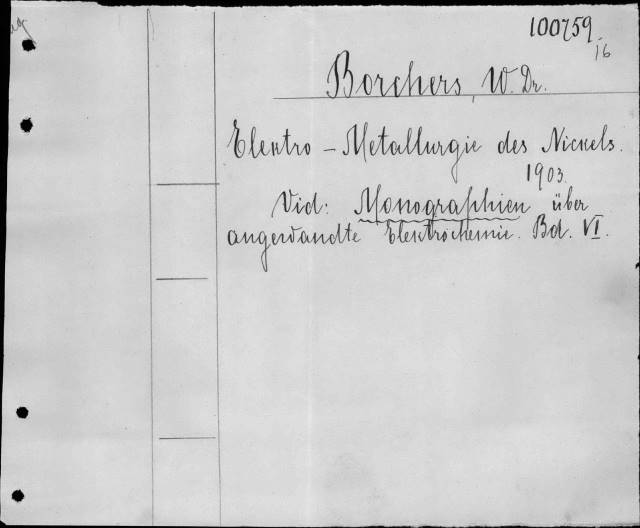 100759
16
Borchers, W. Dr.
Elektro-Metallurgie des Nickels.
1903.
Vid: Monographien über
angewandte Elektrochemie. Bd. VI.